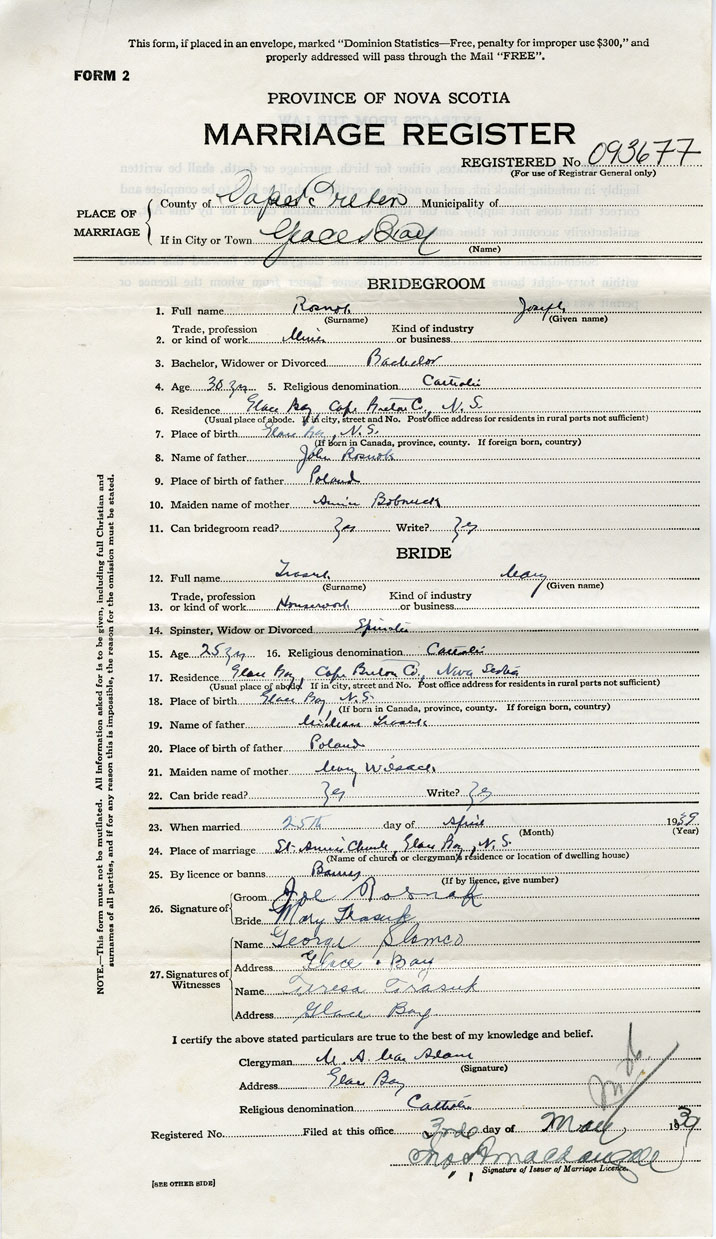 This form, if placed in an envelope, marked "Dominion Statistics—Free, penalty for improper use $300," and
properly addressed will pass through the Mail "FREE".
FORM 2
PROVINCE OF NOVA SCOTIA
MARRIAGE REGISTER
REGISTERED No. 093677
(For use of Registrar General only)
PLACE OF MARRIAGE
County of Cape Breton Municipality of
If in City or Town Glace Bay
(Name)
BRIDEGROOM
1. Full name Rosnok Joseph
(Surname) (Given name)
2. Trade, profession or kind of work Miner Kind of industry or business
3. Bachelor, Widower or Divorced Bachelor
4. Age 30 yrs 5. Religious denomination Catholic
6. Residence Glace Bay, Cape Breton C., N.S.
(Usual place of abode. If in city, street and No. Post office address for residents in rural parts not sufficient)
7. Place of birth Glace Bay, N.S.
(If born in Canada, province, county. If foreign born, country)
8. Name of father John Rosnok
9. Place of birth of father Poland
10. Maiden name of mother Annie
11. Can bridegroom read? Yes Write? Yes
BRIDE
12. Full name Mary
(Surname) (Given name)
13. Trade, profession or kind of work Housework Kind of industry or business
14. Spinster, Widow or Divorced Spinster
15. Age 25 yrs 16. Religious denomination Catholic
17. Residence Glace Bay, Cape Breton Co, Nova Scotia
(Usual place of abode. If in city, street and No. Post office address for residents in rural parts not sufficient)
18. Place of birth Glace Bay N.S.
(If born in Canada, province, county. If foreign born, country)
19. Name of father
20. Place of birth of father Poland
21. Maiden name of mother Mary
22. Can bride read? Yes Write? Yes
23. When married 25th day of April 1939
(Month) (Year)
24. Place of marriage St. Anne's Church, Glace Bay, N.S.
(Name of church or clergyman's residence or location of dwelling house)
25. By licence or banns Banns
(If by licence, give number)
26. Signature of
Groom Joe Rosnak
Bride Mary Trasuk
27. Signatures of Witnesses
Name George Slomco
Address Glace Bay
Name Teresa Trasuk
Address Glace Bay
I certify the above stated particulars are true to the best of my knowledge and belief.
Clergyman M. A. Mac Adam
(Signature)
Address Glace Bay
Religious denomination Catholic
Registered No. Filed at this office 3rd day of May 1939
Signature of Issuer of Marriage Licence.
[SEE OTHER SIDE]
NOTE.—This form must not be mutilated. All information asked for is to be given, including full Christian and
surnames of all parties, and if for any reason this is impossible, the reason for the omission must be stated.